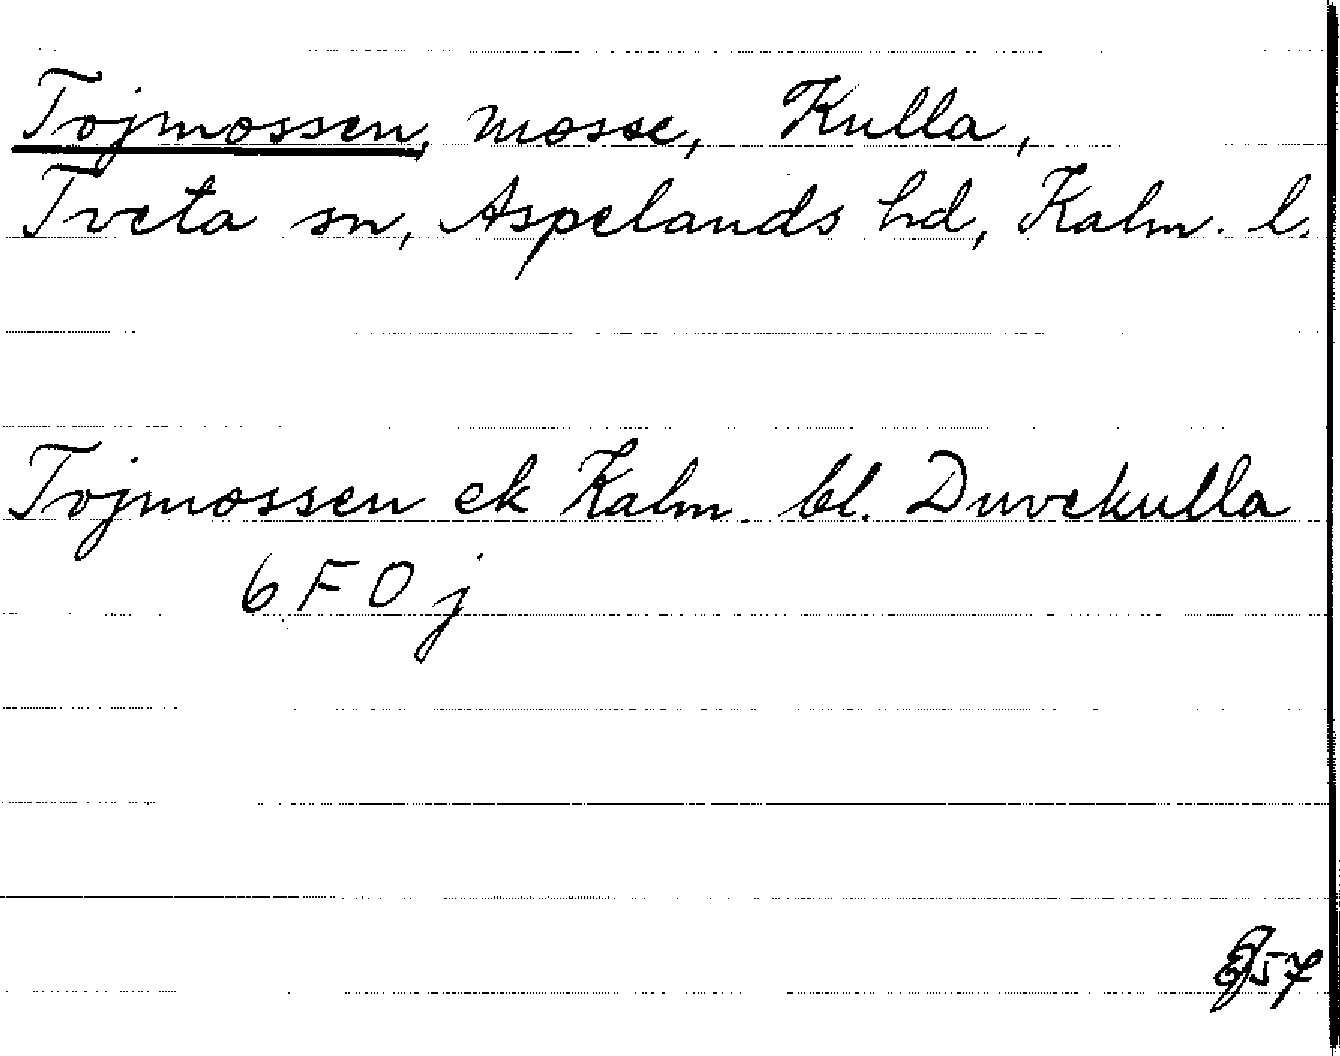 Tojmossen, mosse, Kulla,
Tveta sn, Aspelands hd, Kalm. l.
Tojmossen ek Kalm. bl. Duvekulla
6 F 0 j
57